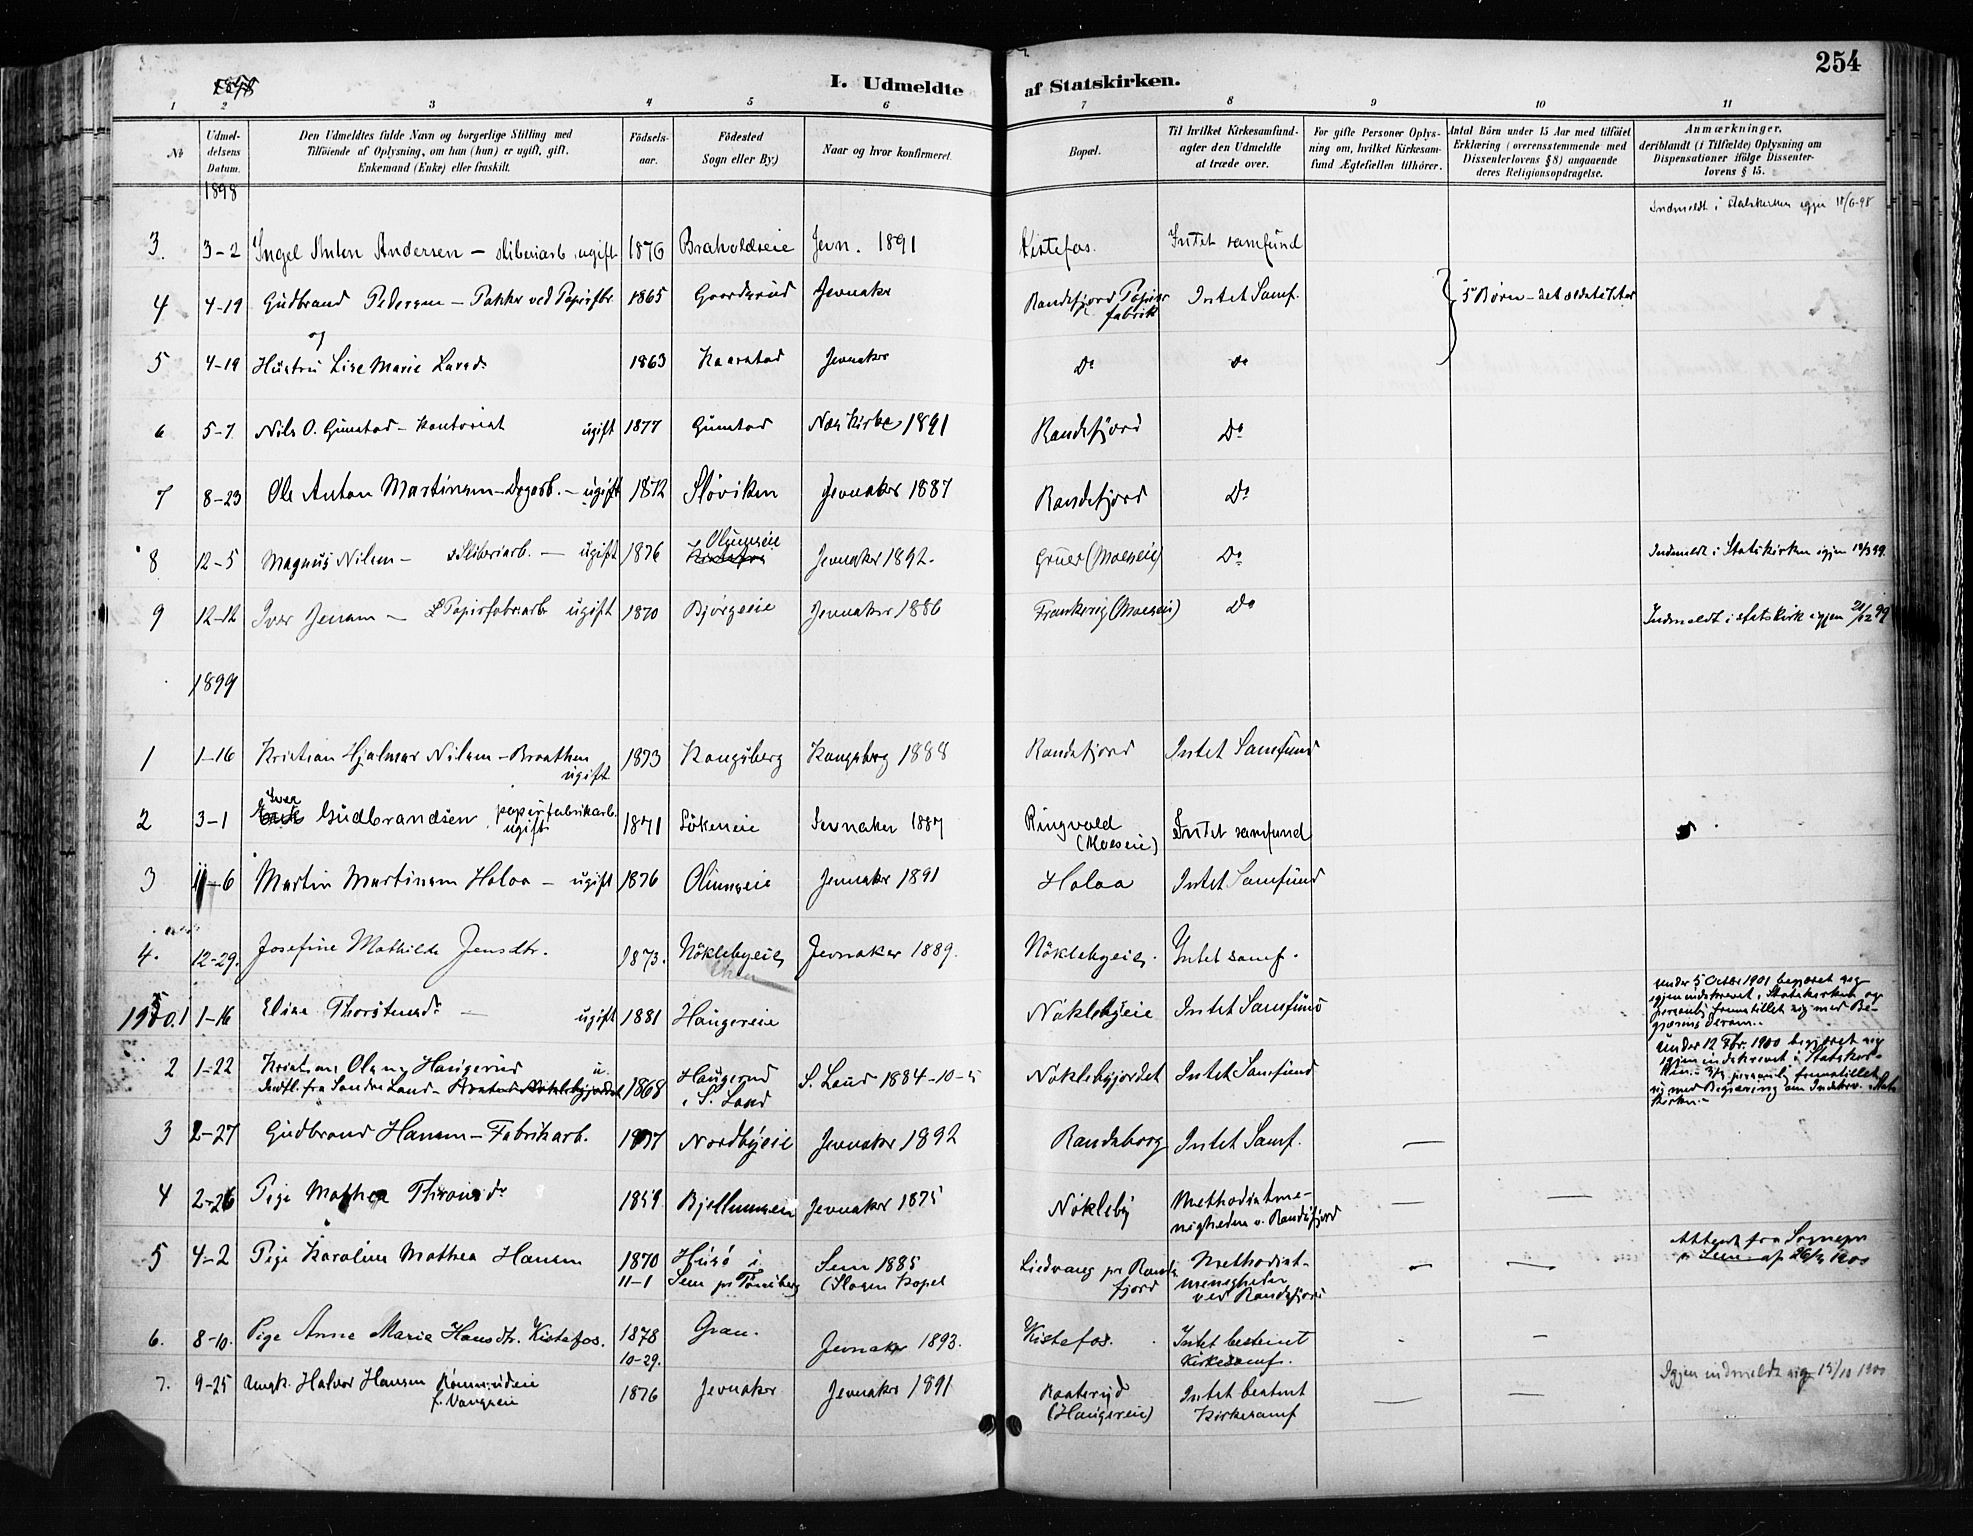 254
I. Udmeldte af Statskirken.
1 2 3 4 5 6 7 8 9 10 11
№
Udmel-
delsens
Datum.
Den Udmeldtes fulde Navn og borgerlige Stilling med
Tilföiende af Oplysning, om han (hun) er ugift, gift,
Enkemand (Enke) eller fraskilt.
Födsels-
aar.
Födested
Sogn eller By.)
Naar og hvor konfirmeret.
Bopæl.
Til hvilket Kirkesamfund-
agter den Udmeldte
at træde over.
For gifte Personer Oplys-
ning om, hvilket Kirkesam-
fund Ægtefællen tilhörer.
Antal Börn under 15 Aar med tilföiet
Erklæring (overensstemmende med
Dissenterlovens § 8) angaaende
deres Religionsopdragelse.
Anmærkninger,
deriblandt (i Tilfælde) Oplysning om
Dispensationer ifölge Dissenter-
lovens § 15.
1898
Indmeldt i statskirken igjen 18/6-98
3. 3-2 Ingel Anton Andersen - sliberiarb. ugift 1876 Braholdseie Jevn. 1891 Kistefos. Intet samfund
4 4-19 Gudbrand Pedersen - Pakker ved Papirfbr. 1865 Gaardsrud Jevnaker Randsfjord Papir- Intet Samf. 5 Børn - det ældste 12 Aar
fabrik
og
5 4-19 Hustru Lise Marie Larsd. 1863 Kaarstad Jevnaker Do do
6 5-7 Nils O. Gunstad - Kontorist ugift 1877 Gunstad Næs Kirke 1891 Randsfjord Do
7 8-23 Ole Anton Martinsen - Dagarb. - ugift 1872 Sløviken Jevnaker 1887 Randsfjord Do
Olimseie
8 12-5 Magnus Nilsen - Sliberiarb. - ugift 1876 Kistefos Jevnaker 1892. Gruer (Moeseie) Do Indmeldt i Statskirken igjen 18/3 99.
9 12-12 Iver Jensen - Papirfabriarb ugift 1870 Bjørgeeie Jevnaker 1886 Frankerig (Moeseie) Do Indmeldt i statskirk igjen 21/12 99
1899
1 1-16 Kristian Hjalmar Nilsen - Braathen 1873 Kongsberg Kongsberg 1888 Randsfjord Intet Samfund
ugift
Iver
2 3-1 Gudbrandsen papirfabrikarb. 1871 Løkeneie Jevnaker 1887 Ringvold Intet samfund
ugift (Moeseie)
3 11-6 Martin Martinsen Holoa - ugift 1876 Olimseie Jevnaker 1891 Holoa Intet Samfund
4. 12-29. Josefine Mathilde Jensdtr. 1873. Nöklebyeie Jevnaker 1889. Nöklebyeie. Intet samf.
1900. 1 1-16 Eline Thorstensdr - ugift 1881 Haugereie Nöklebyeie Intet Samfund
under 5 Octbr 1901 begjæret sig
igjen indskrevet i Statskirken og
personlig fremstillet sig med Be-
gjæring derom.
2 1-22 Kristian Olsen Haugerud u. 1868 Haugerud S. Land 1884-10-5 Nöklebyjordet Intet Samfund
Indfl. fra Søndre Land - i S. Land
under 12 Fbr. 1900 begjæret sig
igjen indskrevet i Statskir-
ken. personlig fremstillet
sig med Begjæring om Indskrv. i Stats
kirken.-
3 2-27 Gudbrand Hansen - Fabrikarb. 1877 Nordbyeie Jevnaker 1892 Randsborg Intet Samf. -
4 2-26 Pige Mathea 1859 Bjellumseie Jevnaker 1875 Nökleby Methodistme- - -
nigheden v. Randsfjord
5 4-2 Pige Karoline Mathea Hansen 1870 Husø i Sem 1885 Liedvang pr Rands Methodist- - -
11-1 Sem pr Tønsberg (Slagen Kapel fjord menigheden
ved Randsfjord
Attest fra Sognepr
Sem af 26/3 1900
6. 8-10. Pige Anne Marie Hansdtr. Kistefos. 1878 Gran. Jevnaker 1893. Kistefos. Intet bestemt -
10-29. Kirkesamf.
7. 9-25 Ungk. Halvor Hansen 1876 Jevnaker Jevnaker 1891 Raaterud Intet bestemt - -
f. Vangseie (Haugereie) Kirkesamf
Igjen indmeldt sig 15/10 1900